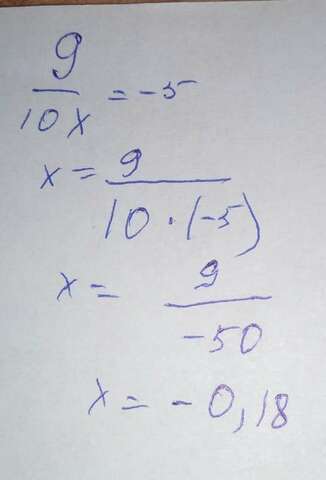 9/10x = -5
x = 9/10 · (-5)
x = 9/-50
x = -0,18